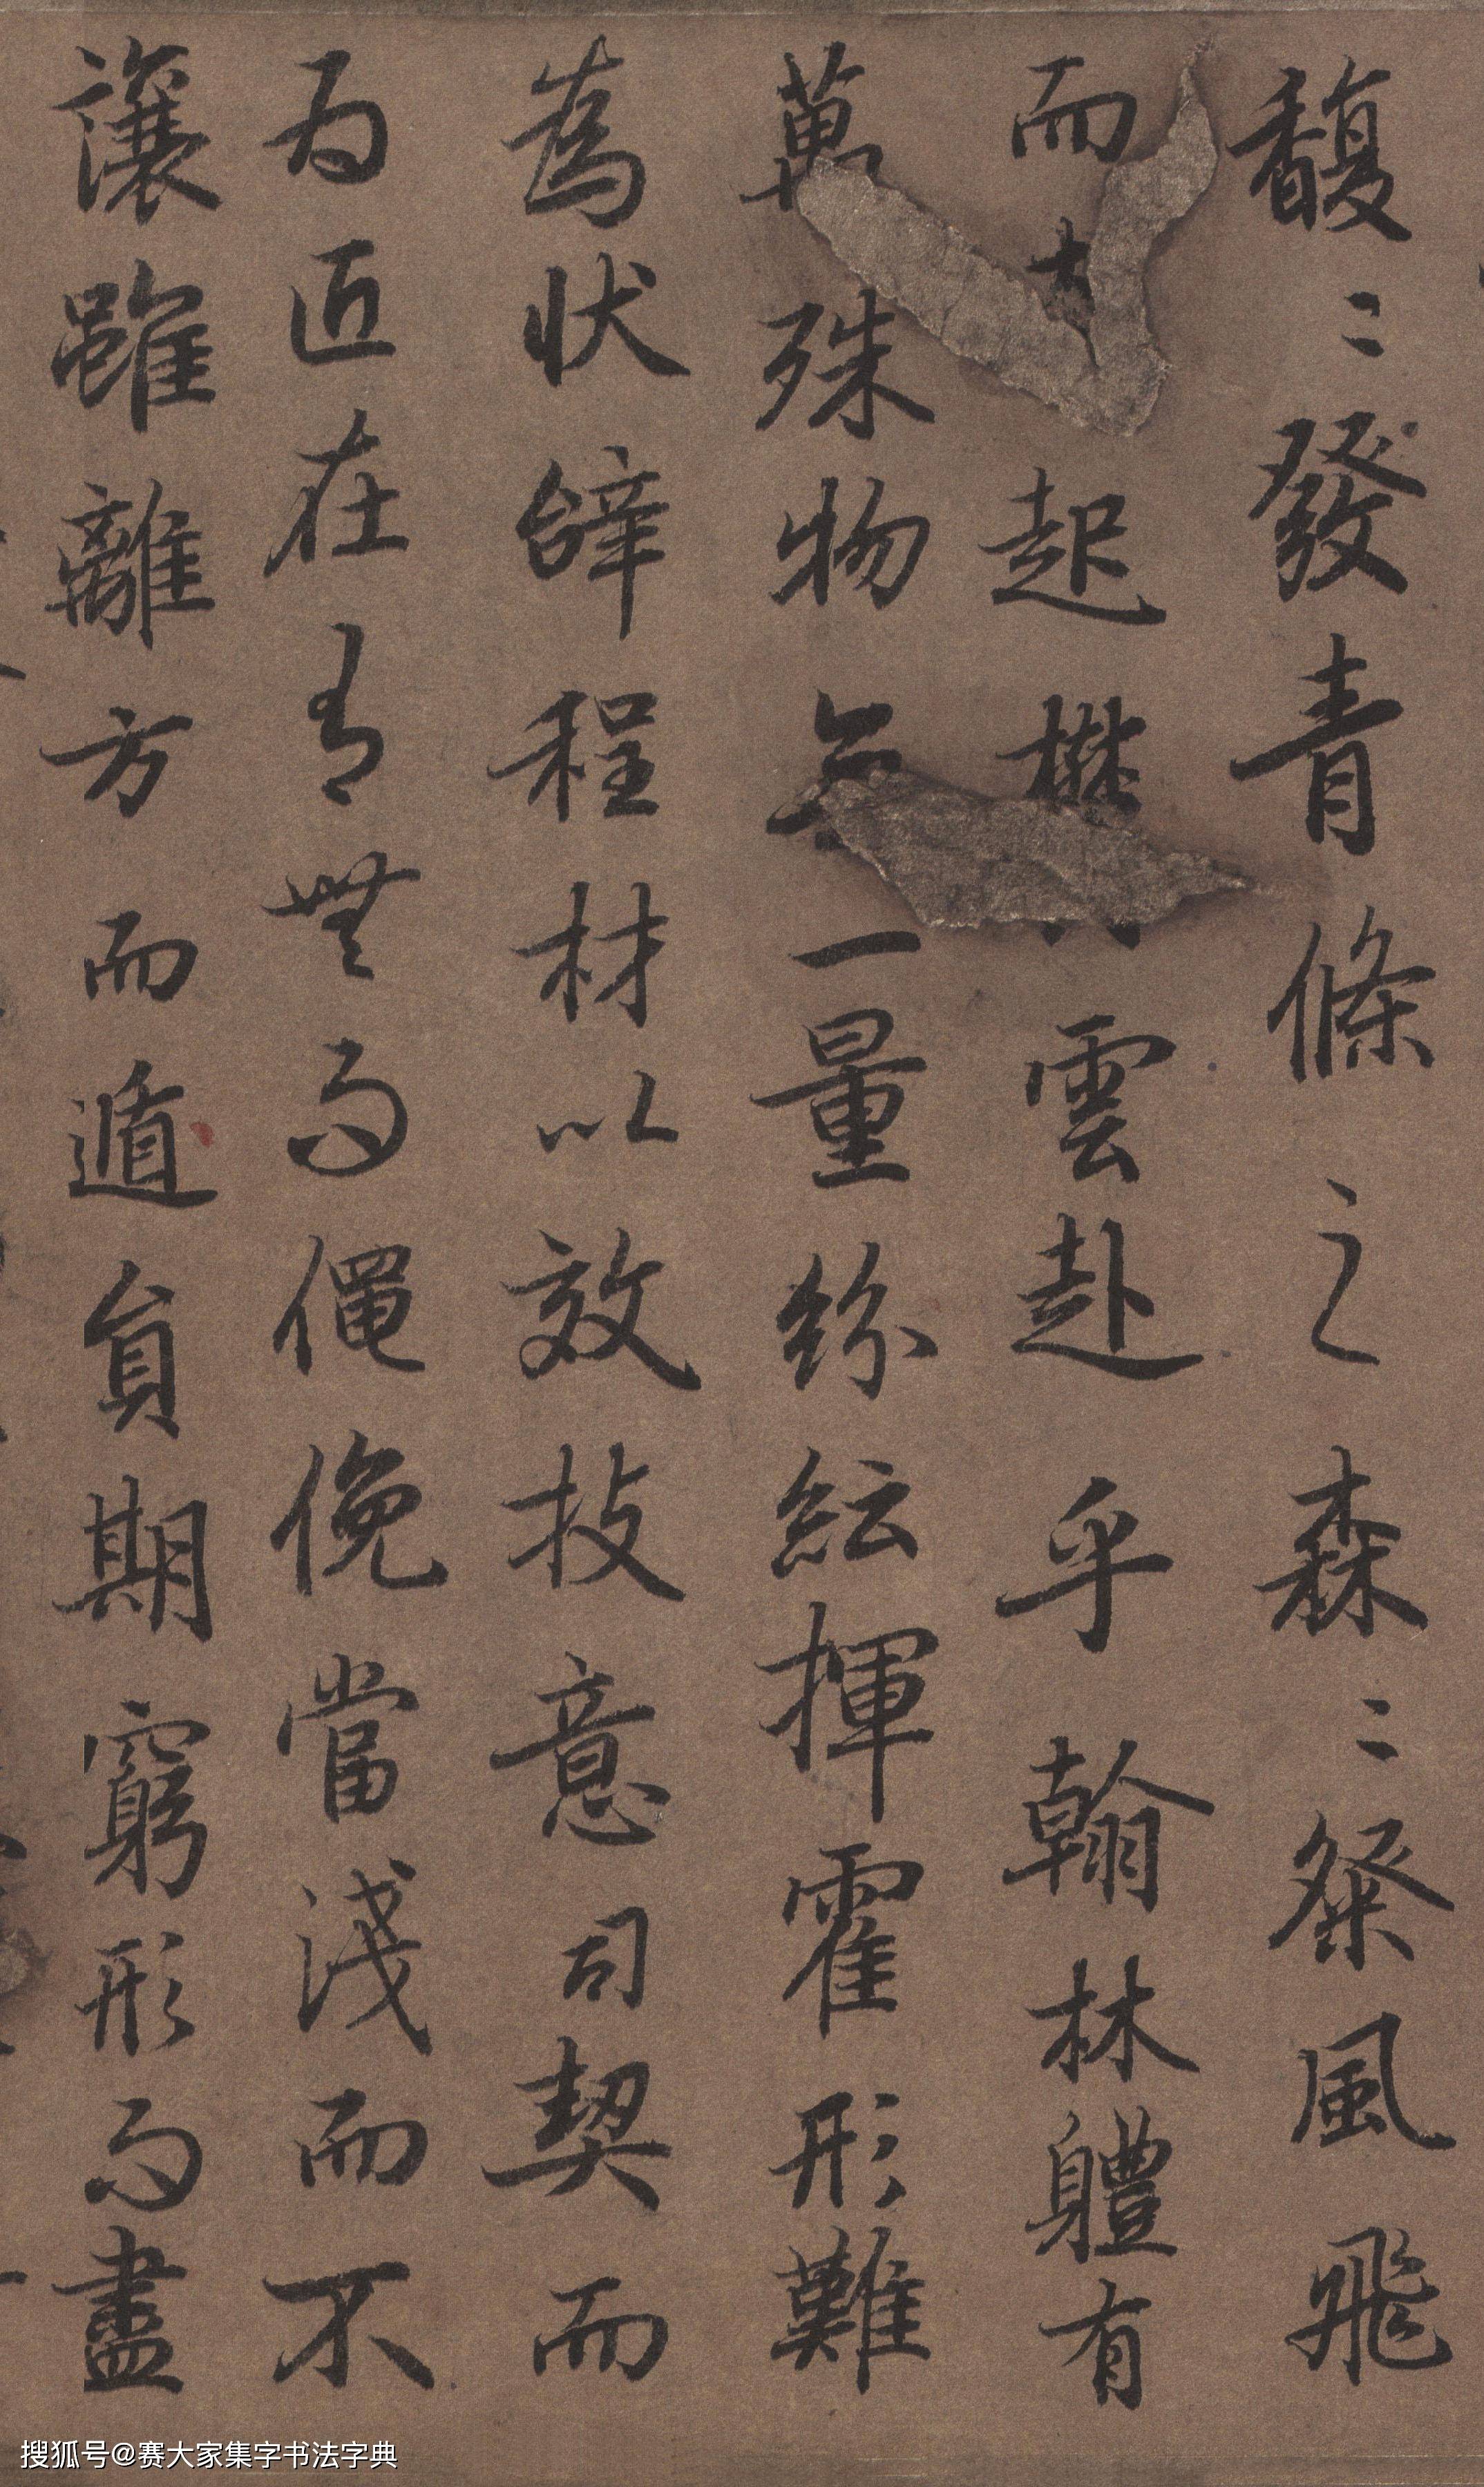 馥〻發青條之森〻粲風飛
而起雲赴乎翰林體有
萬殊物無一量紛紜揮霍形難
為状辝程材以效技意司契而
為匠在有無而僶俛當淺而不
讓雖離方而遁員期窮形而盡
搜狐号@赛大家集字书法字典